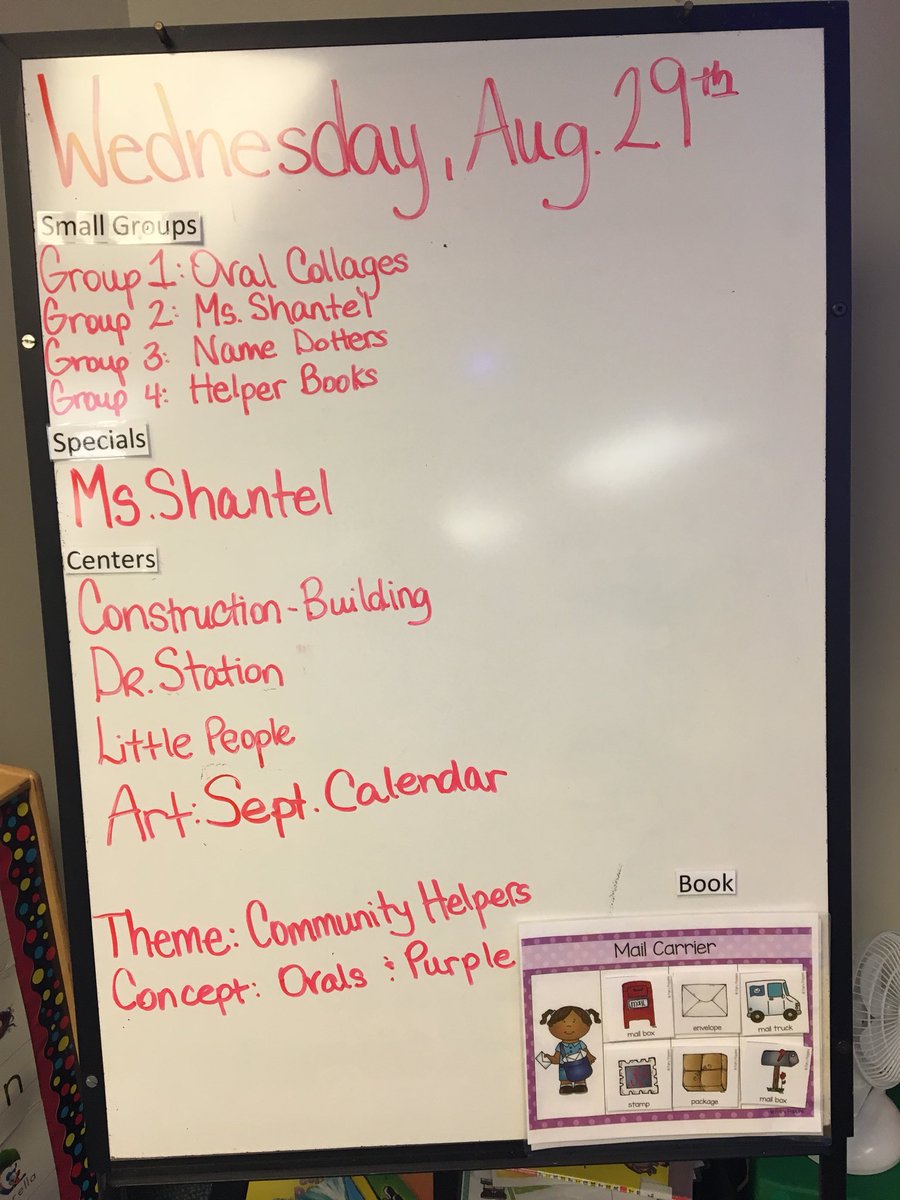 Wednesday, Aug. 29th
Small Groups
Group 1: Oval Collages
Group 2: Ms. Shantel
Group 3: Name Dotters
Group 4: Helper Books
Specials
Ms. Shantel
Centers
Construction-Building
Dr. Station
Little People
Art: Sept. Calendar
Theme: Community Helpers
Concept: Ovals & Purple
Book
Mail Carrier
mail
mail box
envelope
mail truck
stamp
package
mail box
n